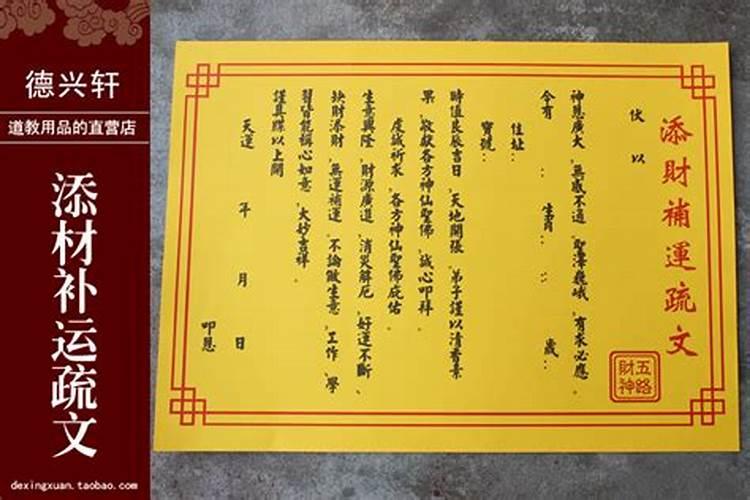 德兴轩
道教用品的直营店
添材补运疏文
dexingxuan.taobao.com
添財補運疏文
五路
財神
伏以
神恩廣大、無感不通、聖澤巍峨、有求必應。
今有 : 生肖: : 歲:
住址:
寶號:
時值良辰吉日、天地開張、弟子謹以清香素
果、敬獻各方神仙聖佛、誠心叩拜
虔誠祈求、各方神仙聖佛庇佑。
生意興隆、財源廣進、消災解厄、好運不斷、
缺財添財、無運補運、不論做生意、工作、學
習皆能稱心如意、大妙吉祥。
謹具牒以上聞
天運 年 月 日
叩恩